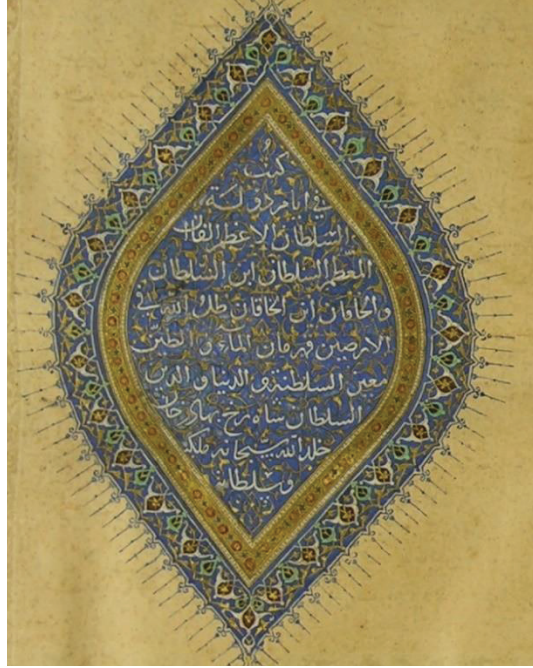 كتب
في ايام دولة
السلطان الاعظم الخاقان
المعظم السلطان ابن السلطان
والخاقان ابن الخاقان ظل الله في
الارضين قهرمان الماء و الطين
معين السلطنة و الدنيا و الدين
السلطان شاه رخ بهادر خان
خلد الله سبحانه ملكه
و سلطانه